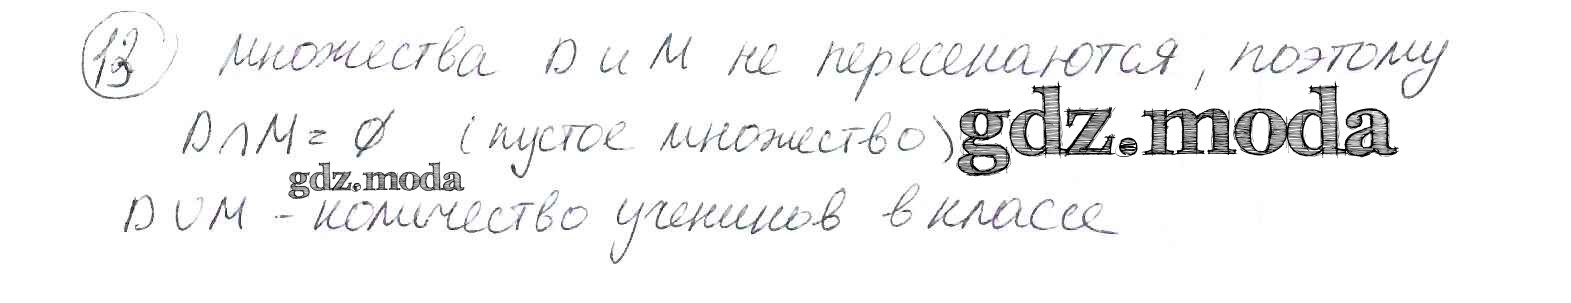 13 Множества D и M не пересекаются, поэтому
D ∩ M = ∅ (пустое множество) gdz.moda
gdz.moda
D ∪ M - количество учеников в классе